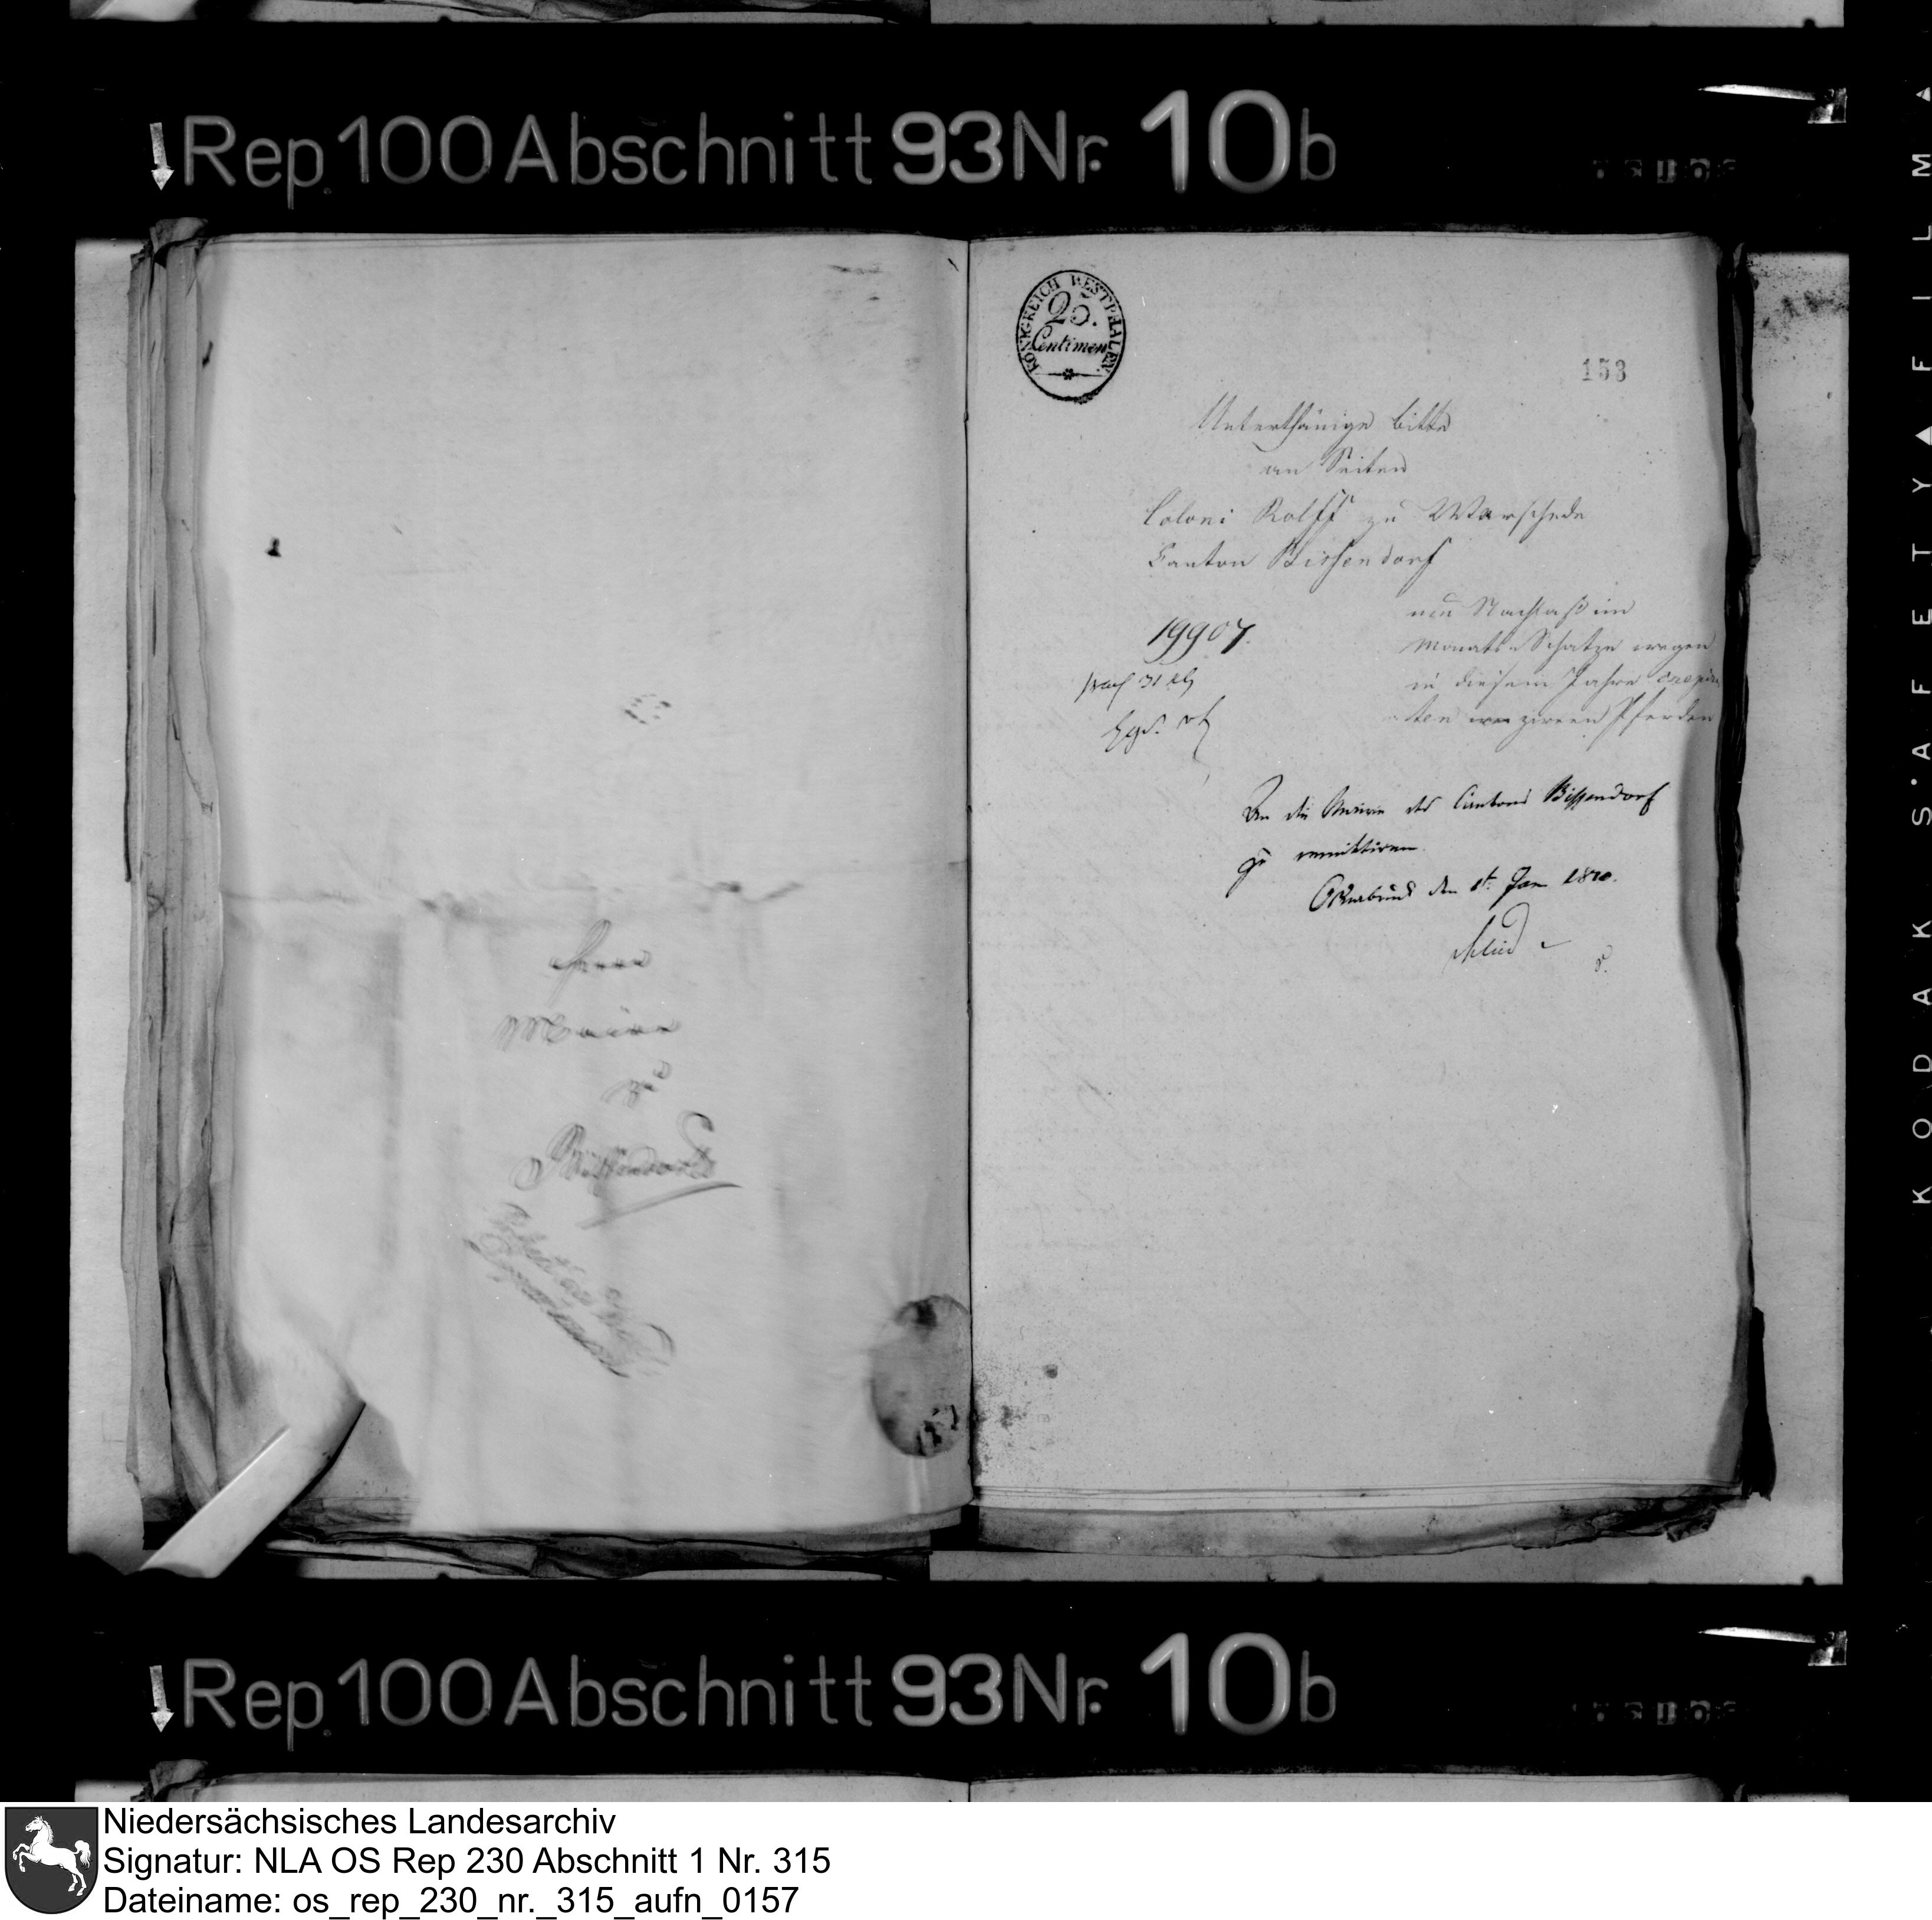 Rep. 100 Abschnitt 93 Nr. 10b
Herrn
Maire
zu
Bissendorf
KÖNIGREICH WESTPHALEN.
25.
Centimen
153
Unterthänige Bitte
an Seiten
Coloni Rolff zu Warschede
Canton Bissendorf
um Nachlaß im
Monats-Schatze wegen
in diesem Jahre crepir
ten zweÿen Pferden
19907.
An die Mairie des Cantons Bissendorf
zu remittiren.
Osnabrück den 8t. Jan 1810.
Rep. 100 Abschnitt 93 Nr. 10b
KODAK SAFETY FILM
Niedersächsisches Landesarchiv
Signatur: NLA OS Rep 230 Abschnitt 1 Nr. 315
Dateiname: os_rep_230_nr._315_aufn_0157